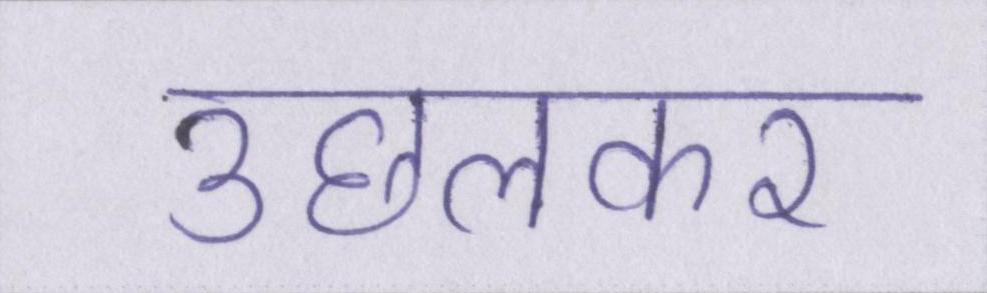 उछलकर